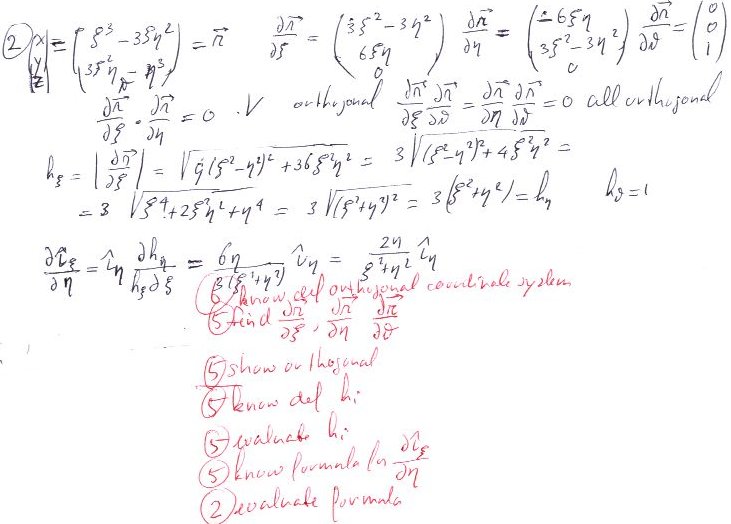 ② (x y z) = (ξ³ - 3ξη² 3ξ²η - η³ ϑ) = r⃗ ∂r⃗/∂ξ = (3ξ² - 3η² 6ξη 0) ∂r⃗/∂η = (-6ξη 3ξ² - 3η² 0) ∂r⃗/∂ϑ = (0 0 1)
∂r⃗/∂ξ · ∂r⃗/∂η = 0 · V orthogonal ∂r⃗/∂ξ ∂r⃗/∂ϑ = ∂r⃗/∂η ∂r⃗/∂ϑ = 0 all orthogonal
h_ξ = |∂r⃗/∂ξ| = √(9(ξ² - η²)² + 36ξ²η²) = 3√((ξ² - η²)² + 4ξ²η²) =
= 3 √(ξ⁴ + 2ξ²η² + η⁴) = 3√((ξ² + η²)²) = 3(ξ² + η²) = h_η h_ϑ = 1
∂î_ξ/∂η = î_η ∂h_η/(h_ξ ∂ξ) = 6η/(3(ξ² + η²)) î_η = 2η/(ξ² + η²) î_η
⑥ know def orthogonal coordinate system
⑤ find ∂r⃗/∂ξ, ∂r⃗/∂η ∂r⃗/∂ϑ
⑤ show orthogonal
⑤ know def hᵢ
⑤ evaluate hᵢ
⑤ know formula for ∂î_ξ/∂η
② evaluate formula